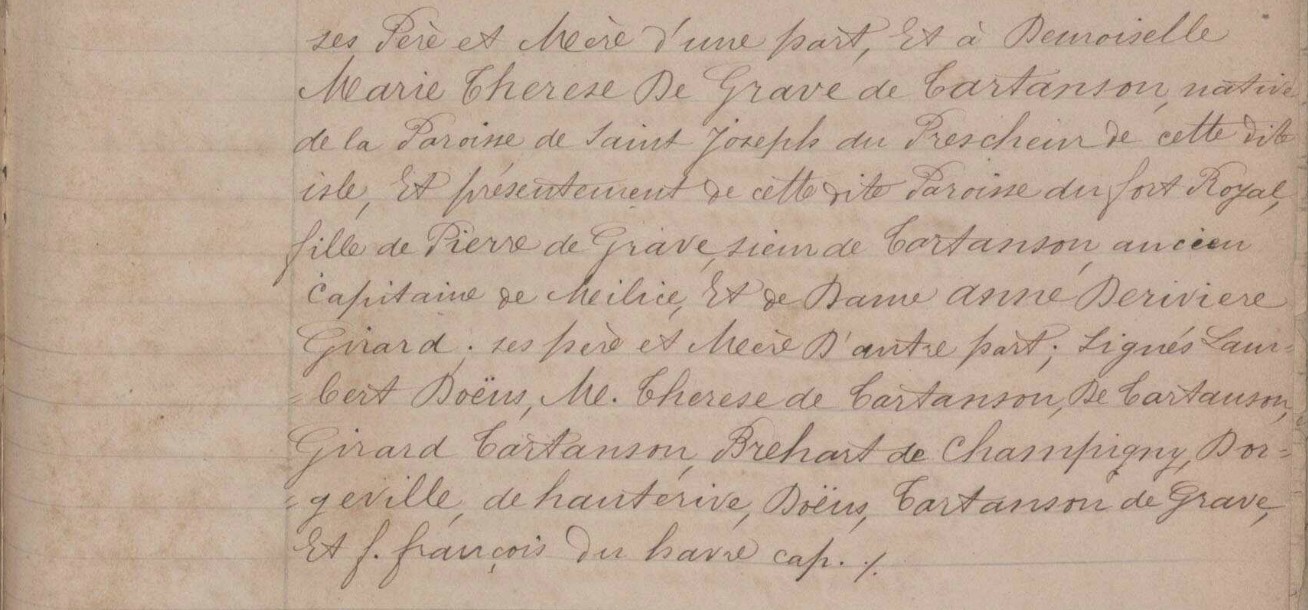 ses Père et Mère d'une part, Et à Demoiselle
Marie Therese De Grave de Tartanson, native
de la Paroisse de Saint Joseph du Prescheur de cette dite
isle, Et présentement de cette dite Paroisse du fort Royal,
fille de Pierre de Grave, sieur de Tartanson, ancien
Capitaine de Meilice, Et de Dame anne Deriviere
Girard ; ses père et Mère D'autre part ; Signés Lam=
=bert Doëns, M. Therese de Tartanson, De Tartanson,
Girard Tartanson, Brehart de Champigny, Dor=
=geville, de hauterive, Doëns, Tartanson de Grave,
Et f. françois du havre cap. ./.